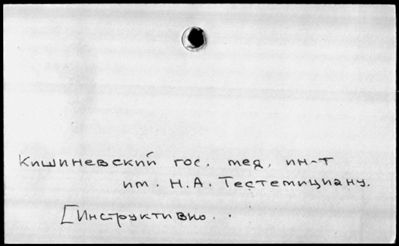 Кишиневский гос. мед. ин-т
им. Н.А. Тестемициану.
[Инструктивно..